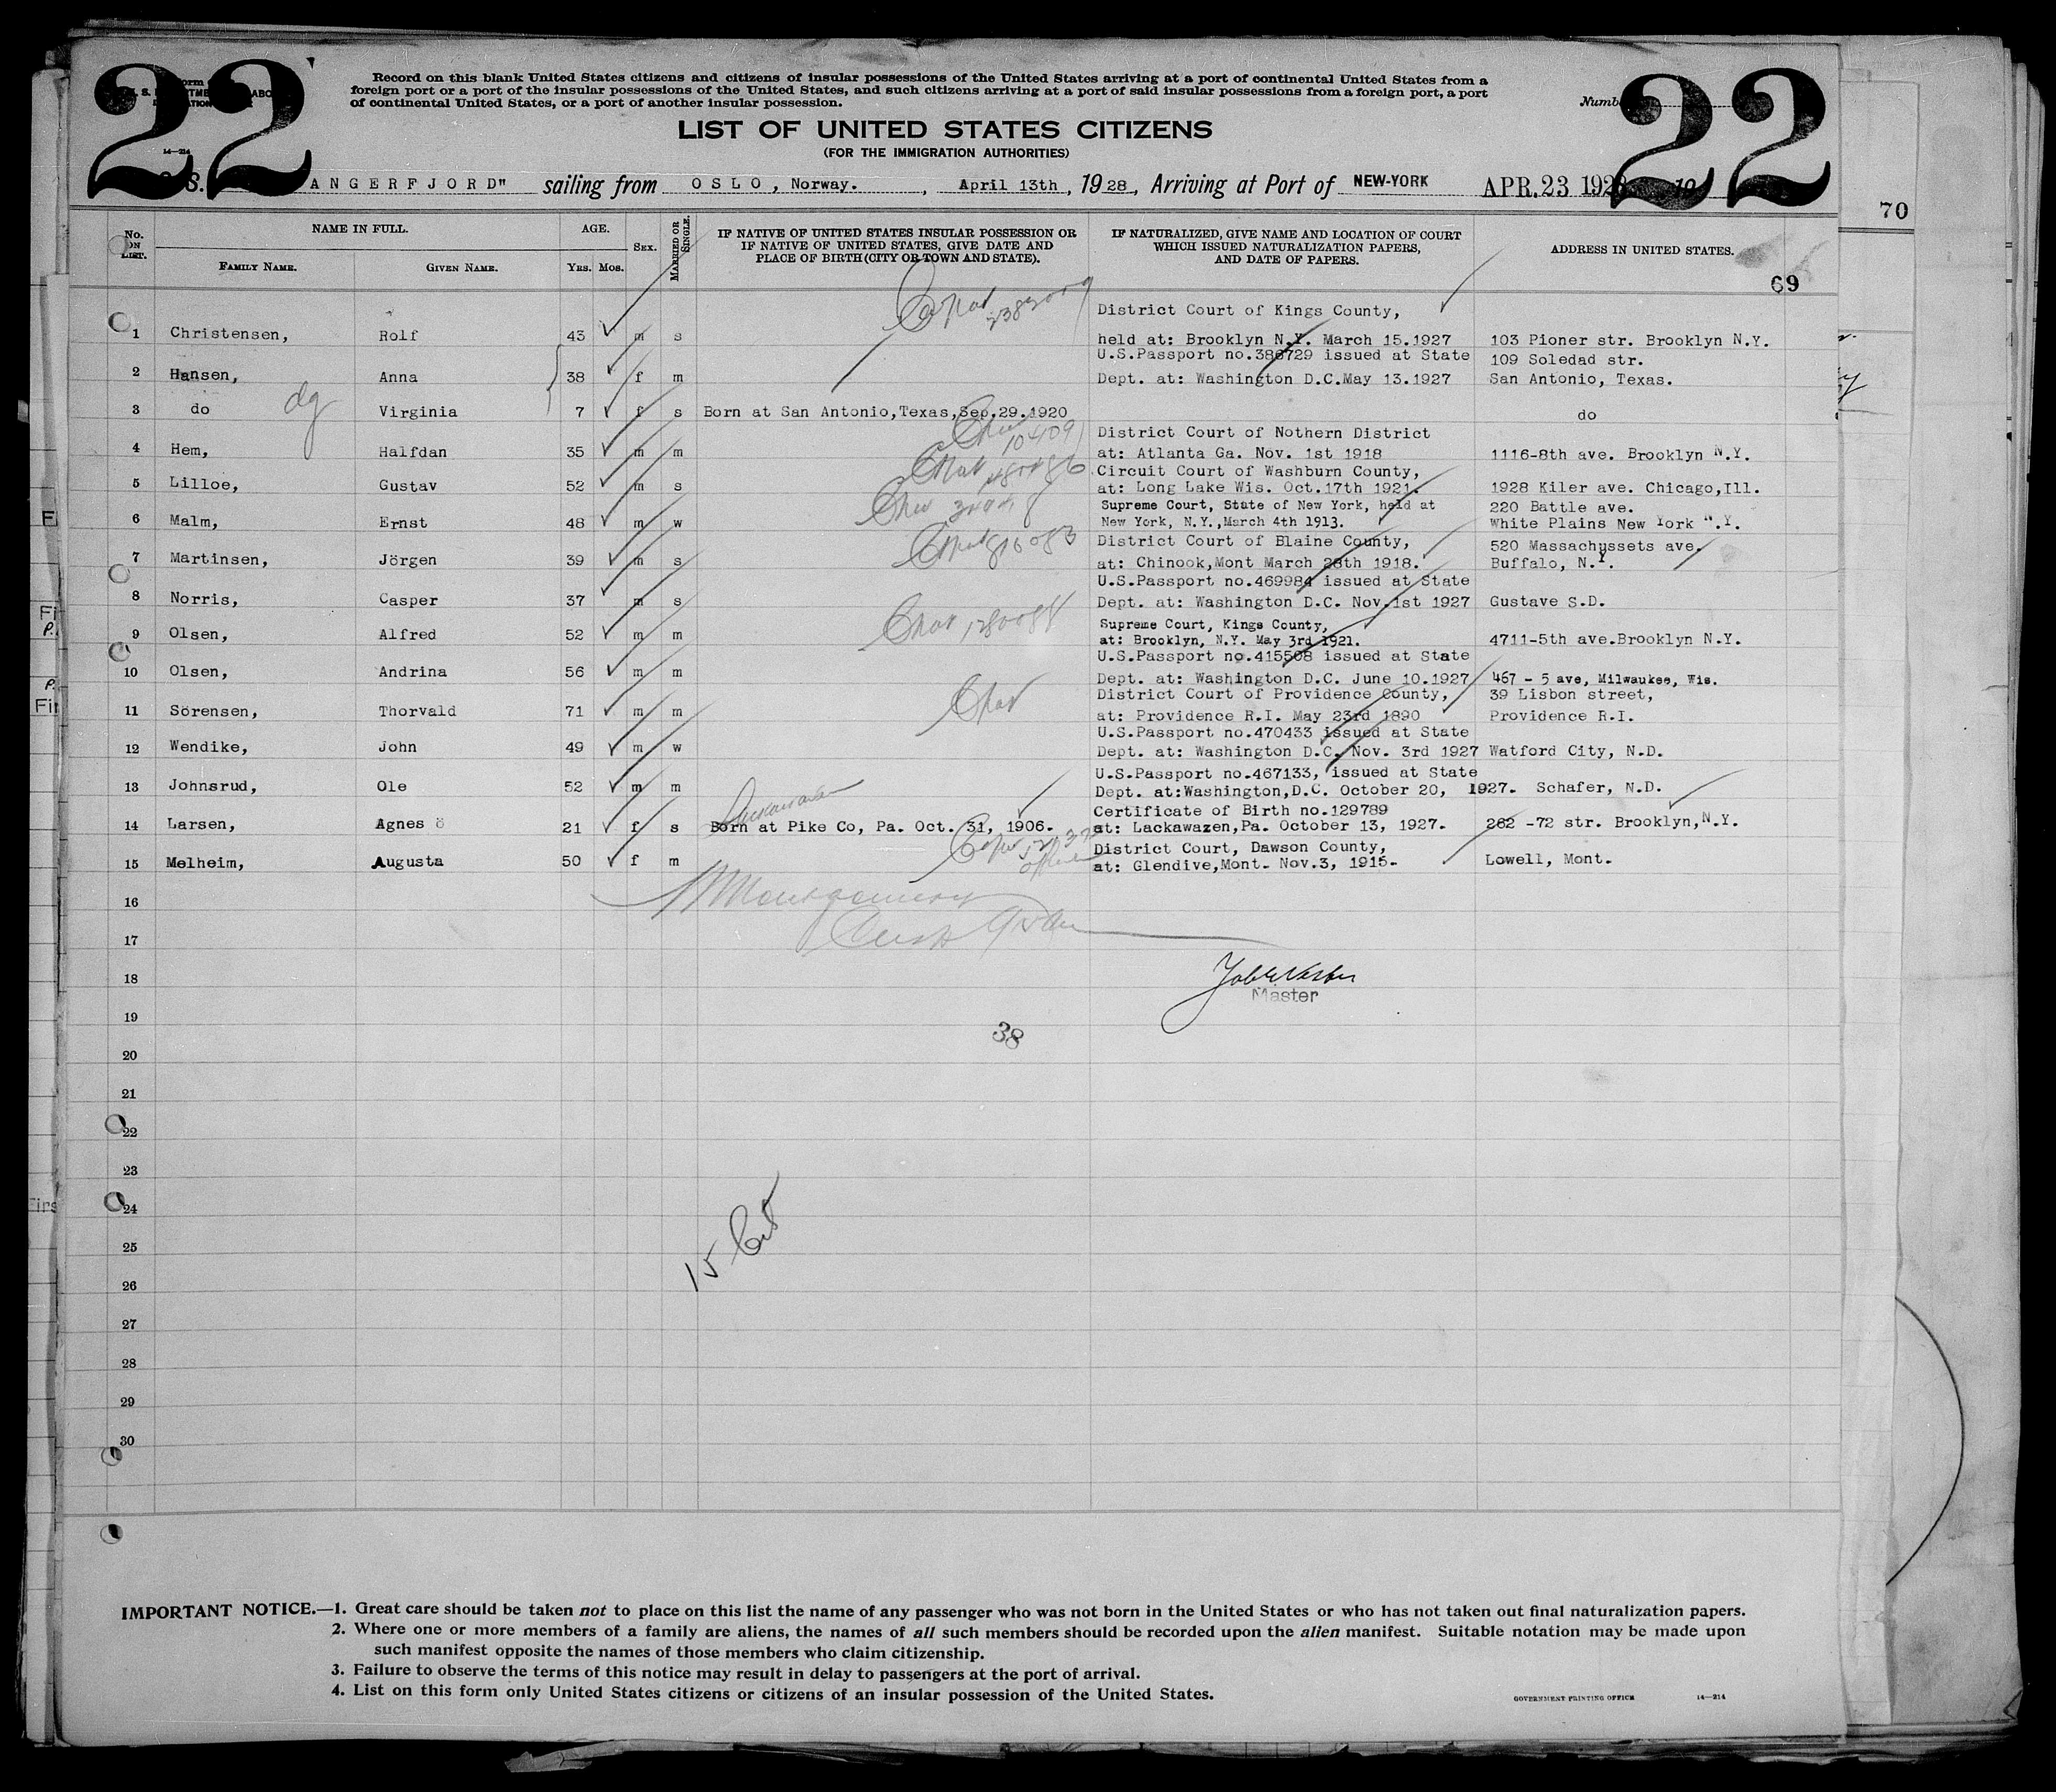 22
22
Record on this blank United States citizens and citizens of insular possessions of the United States arriving at a port of continental United States from a
foreign port or a port of the insular possessions of the United States, and such citizens arriving at a port of said insular possessions from a foreign port, a port
of continental United States, or a port of another insular possession.
LIST OF UNITED STATES CITIZENS
(FOR THE IMMIGRATION AUTHORITIES)
14—214
S. ANGERFJORD" sailing from OSLO, Norway. , April 13th, 1928, Arriving at Port of NEW-YORK APR. 23 192
70
No. ON LIST. NAME IN FULL. AGE. SEX. MARRIED OR SINGLE. IF NATIVE OF UNITED STATES INSULAR POSSESSION OR IF NATIVE OF UNITED STATES, GIVE DATE AND PLACE OF BIRTH (CITY OR TOWN AND STATE). IF NATURALIZED, GIVE NAME AND LOCATION OF COURT WHICH ISSUED NATURALIZATION PAPERS, AND DATE OF PAPERS. ADDRESS IN UNITED STATES.
FAMILY NAME. GIVEN NAME. YRS. MOS.
69
District Court of Kings County,
1 Christensen, Rolf 43 m s held at: Brooklyn N.Y. March 15.1927 103 Pioner str. Brooklyn N.Y.
U.S.Passport no.386729 issued at State 109 Soledad str.
2 Hansen, Anna 38 f m Dept. at: Washington D.C.May 13.1927 San Antonio, Texas.
dg
3 do Virginia 7 f s Born at San Antonio,Texas,Sep.29.1920 do
District Court of Nothern District
4 Hem, Halfdan 35 m m at: Atlanta Ga. Nov. 1st 1918 1116-8th ave. Brooklyn N.Y.
Circuit Court of Washburn County,
5 Lilloe, Gustav 52 m s at: Long Lake Wis. Oct.17th 1921. 1928 Kiler ave. Chicago,Ill.
Supreme Court, State of New York, held at 220 Battle ave.
6 Malm, Ernst 48 m w New York, N.Y.,March 4th 1913. White Plains New York N.Y.
District Court of Blaine County, 520 Massachussets ave.
7 Martinsen, Jörgen 39 m s at: Chinook,Mont March 28th 1918. Buffalo, N.Y.
U.S.Passport no.469984 issued at State
8 Norris, Casper 37 m s Dept. at: Washington D.C. Nov.1st 1927 Gustave S.D.
Supreme Court, Kings County,
9 Olsen, Alfred 52 m m at: Brooklyn, N.Y. May 3rd 1921. 4711-5th ave.Brooklyn N.Y.
U.S.Passport no.415508 issued at State
10 Olsen, Andrina 56 m m Dept. at: Washington D.C. June 10.1927 467 - 5 ave, Milwaukee, Wis.
District Court of Providence County, 39 Lisbon street,
11 Sörensen, Thorvald 71 m m at: Providence R.I. May 23rd 1890 Providence R.I.
U.S.Passport no.470433 issued at State
12 Wendike, John 49 m w Dept. at: Washington D.C. Nov. 3rd 1927 Watford City, N.D.
U.S.Passport no.467133, issued at State
13 Johnsrud, Ole 52 m m Dept. at:Washington,D.C. October 20, 1927. Schafer, N.D.
Lackawaxen
Certificate of Birth no.129789
14 Larsen, Agnes 21 f s Born at Pike Co, Pa. Oct. 31, 1906. at: Lackawazen,Pa. October 13, 1927. 262 -72 str. Brooklyn,N.Y.
District Court, Dawson County,
15 Melheim, Augusta 50 f m at: Glendive,Mont. Nov.3, 1915. Lowell, Mont.
16
Montgomery
17
18
Master
19
38
20
21
22
23
24
15 Cit
25
26
27
28
29
30
IMPORTANT NOTICE.—1. Great care should be taken not to place on this list the name of any passenger who was not born in the United States or who has not taken out final naturalization papers.
2. Where one or more members of a family are aliens, the names of all such members should be recorded upon the alien manifest. Suitable notation may be made upon
such manifest opposite the names of those members who claim citizenship.
3. Failure to observe the terms of this notice may result in delay to passengers at the port of arrival.
4. List on this form only United States citizens or citizens of an insular possession of the United States.
GOVERNMENT PRINTING OFFICE 14—214